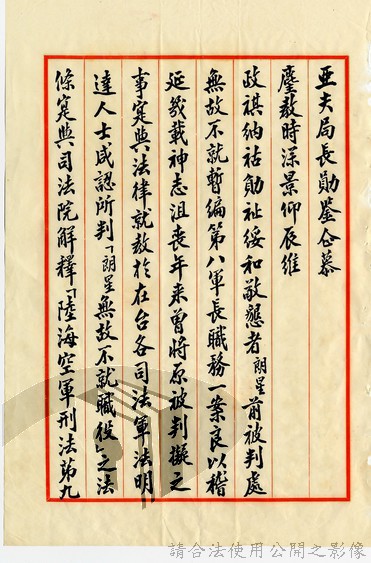 亞夫局長勛鑒企慕
麈教時深景仰辰維
政祺納祜勛祉綏和敬懇者朗星前被判處
無故不就暫編第八軍長職務一案良以稽
延幾載神志沮喪年來曾將原被判擬之
事寔與法律就教於在台各司法軍法明
達人士咸認所判「朗星無故不就職役」之法
條寔與司法院解釋「陸海空軍刑法第九
請合法使用公開之影像